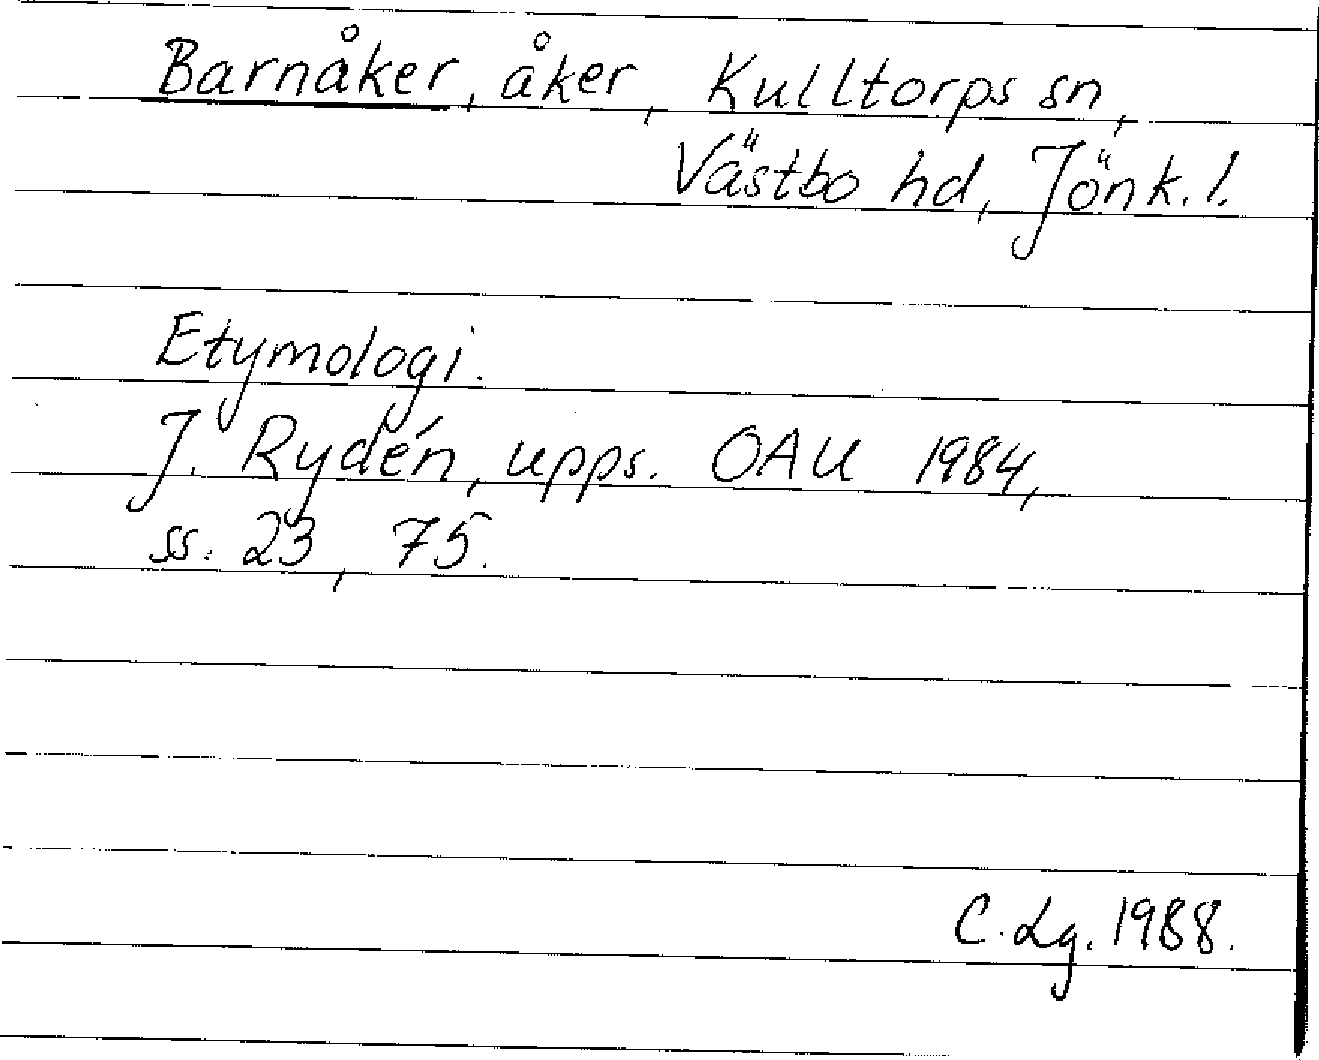 Barnåker, åker, Kulltorps sn,
Västbo hd, Jönk. l.
Etymologi.
J. Rydén, upps. OAU 1984,
ss. 23, 75.
C. Lg. 1988.